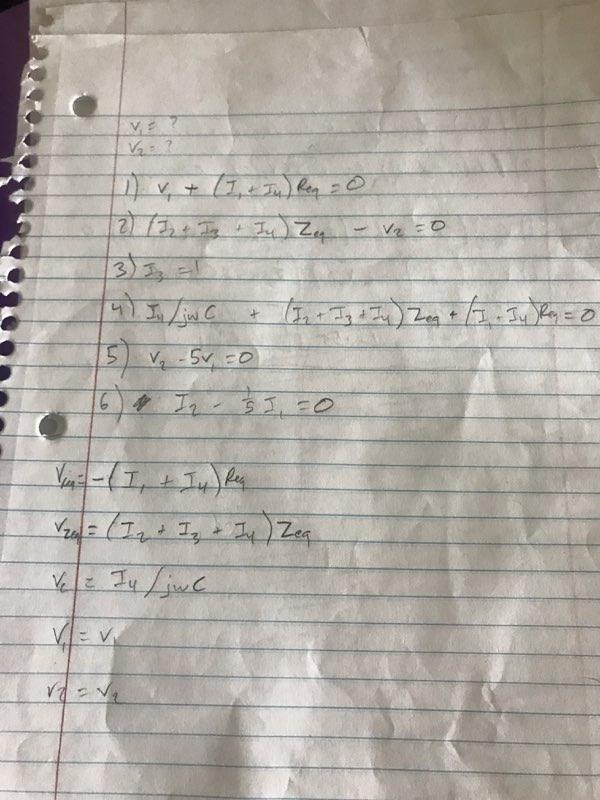 V₁ = ?
V₂ = ?
1) V₁ + (I₁ + I₄) Req = 0
2) (I₂ + I₃ + I₄) Zeq - V₂ = 0
3) I₃ = 1
4) I₄/jwC + (I₂ + I₃ + I₄) Zeq + (I₁ + I₄) Req = 0
5) V₂ - 5V₁ = 0
6) I₂ - 1/5 I₁ = 0
= -(I₁ + I₄) Req
Vzeq = (I₂ + I₃ + I₄) Zeq
Vc = I₄/jwC
V₁ = V₁
V₂ = V₂